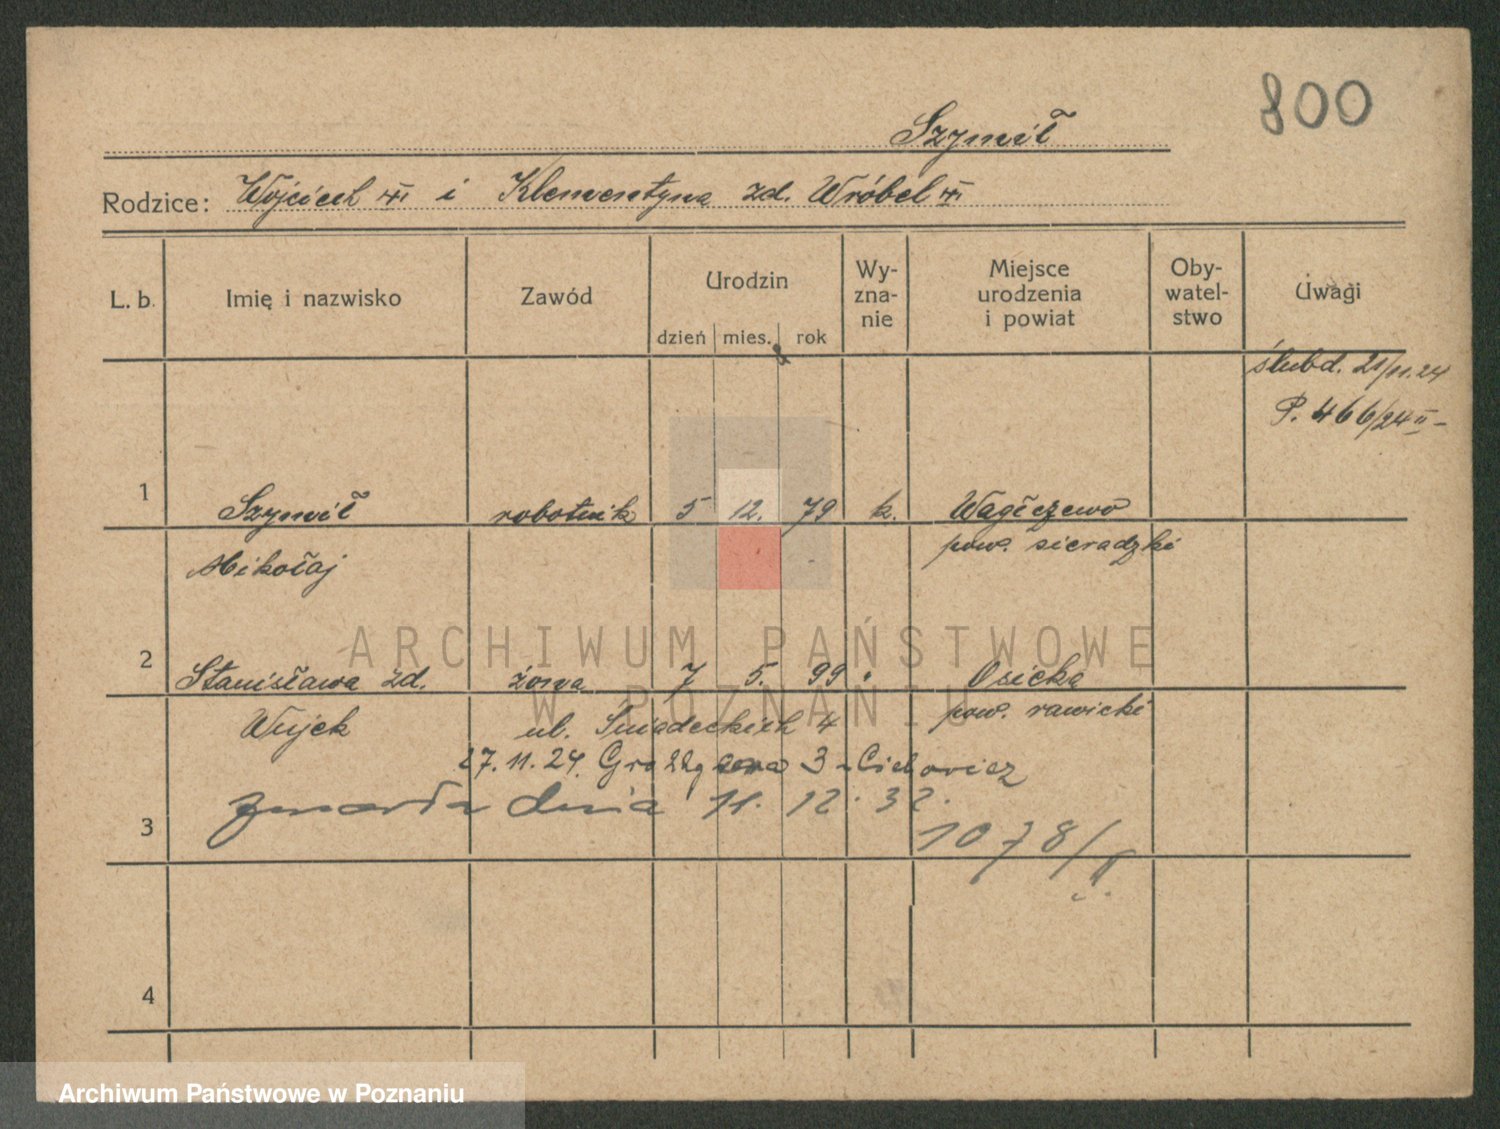 800
Szymił
Rodzice: Wojciech i Klementyna zd. Wróbel
L. b. Imię i nazwisko Zawód Urodzin dzień mies. rok Wy-zna-nie Miejsce urodzenia i powiat Oby-watel-stwo Uwagi
ślub d. 21/11.24
P. 466/24 II
1 Szymił robotnik 5 12. 79 k.
Mikołaj pow. sieradzki
2 Stanisława zd. żona 7 5. 99 " Osiecka
Wujek ul. Śniadeckich 4 pow. rawicki
27.11.24 3
3 zmarła dnia 11. 12. 32.
1078/II
4
ARCHIWUM PAŃSTWOWE
W POZNANIU
Archiwum Państwowe w Poznaniu